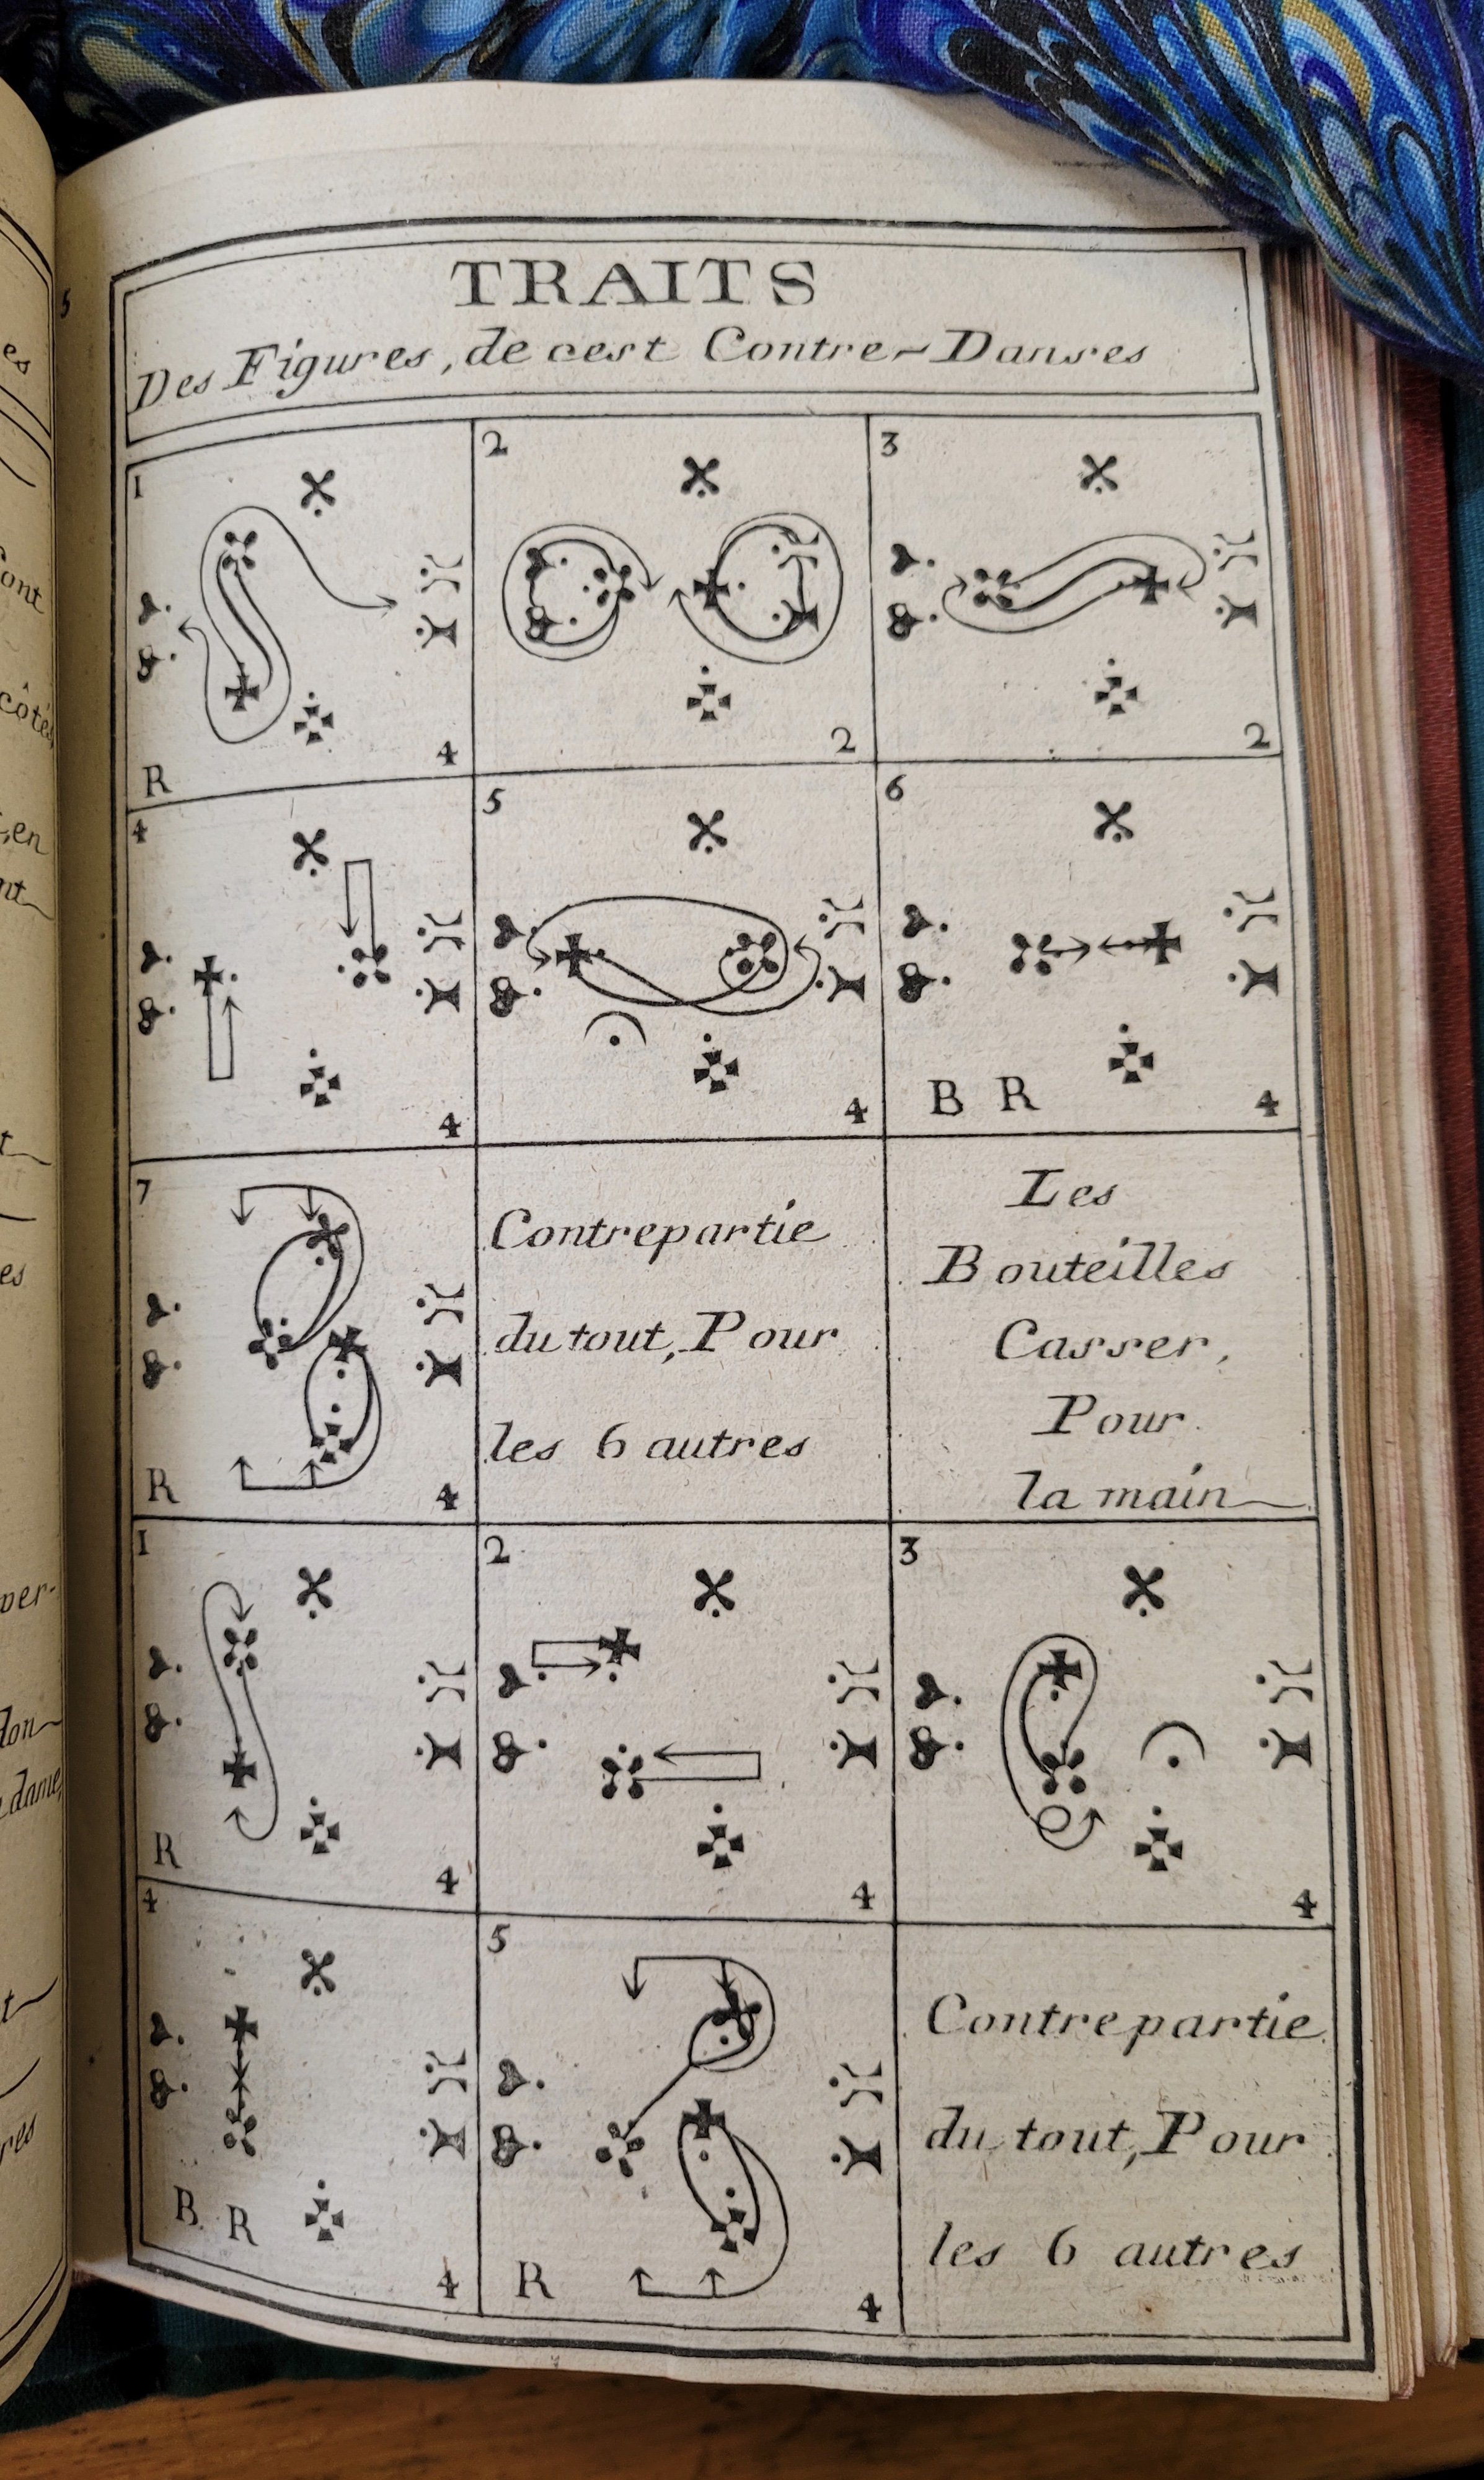 TRAITS
Des Figures, de cest Contre-Danses
1
R
4
2
2
3
2
4
4
5
4
6
B R
4
7
R
4
Contrepartie
du tout, Pour
les 6 autres
Les
Bouteilles
Casser,
Pour
la main
1
R
4
2
4
3
4
4
B R
4
5
R
4
Contrepartie
du tout, Pour
les 6 autres
5
es
ont
côtés
en
nt
t
es
ver-
don
dame,
t
res